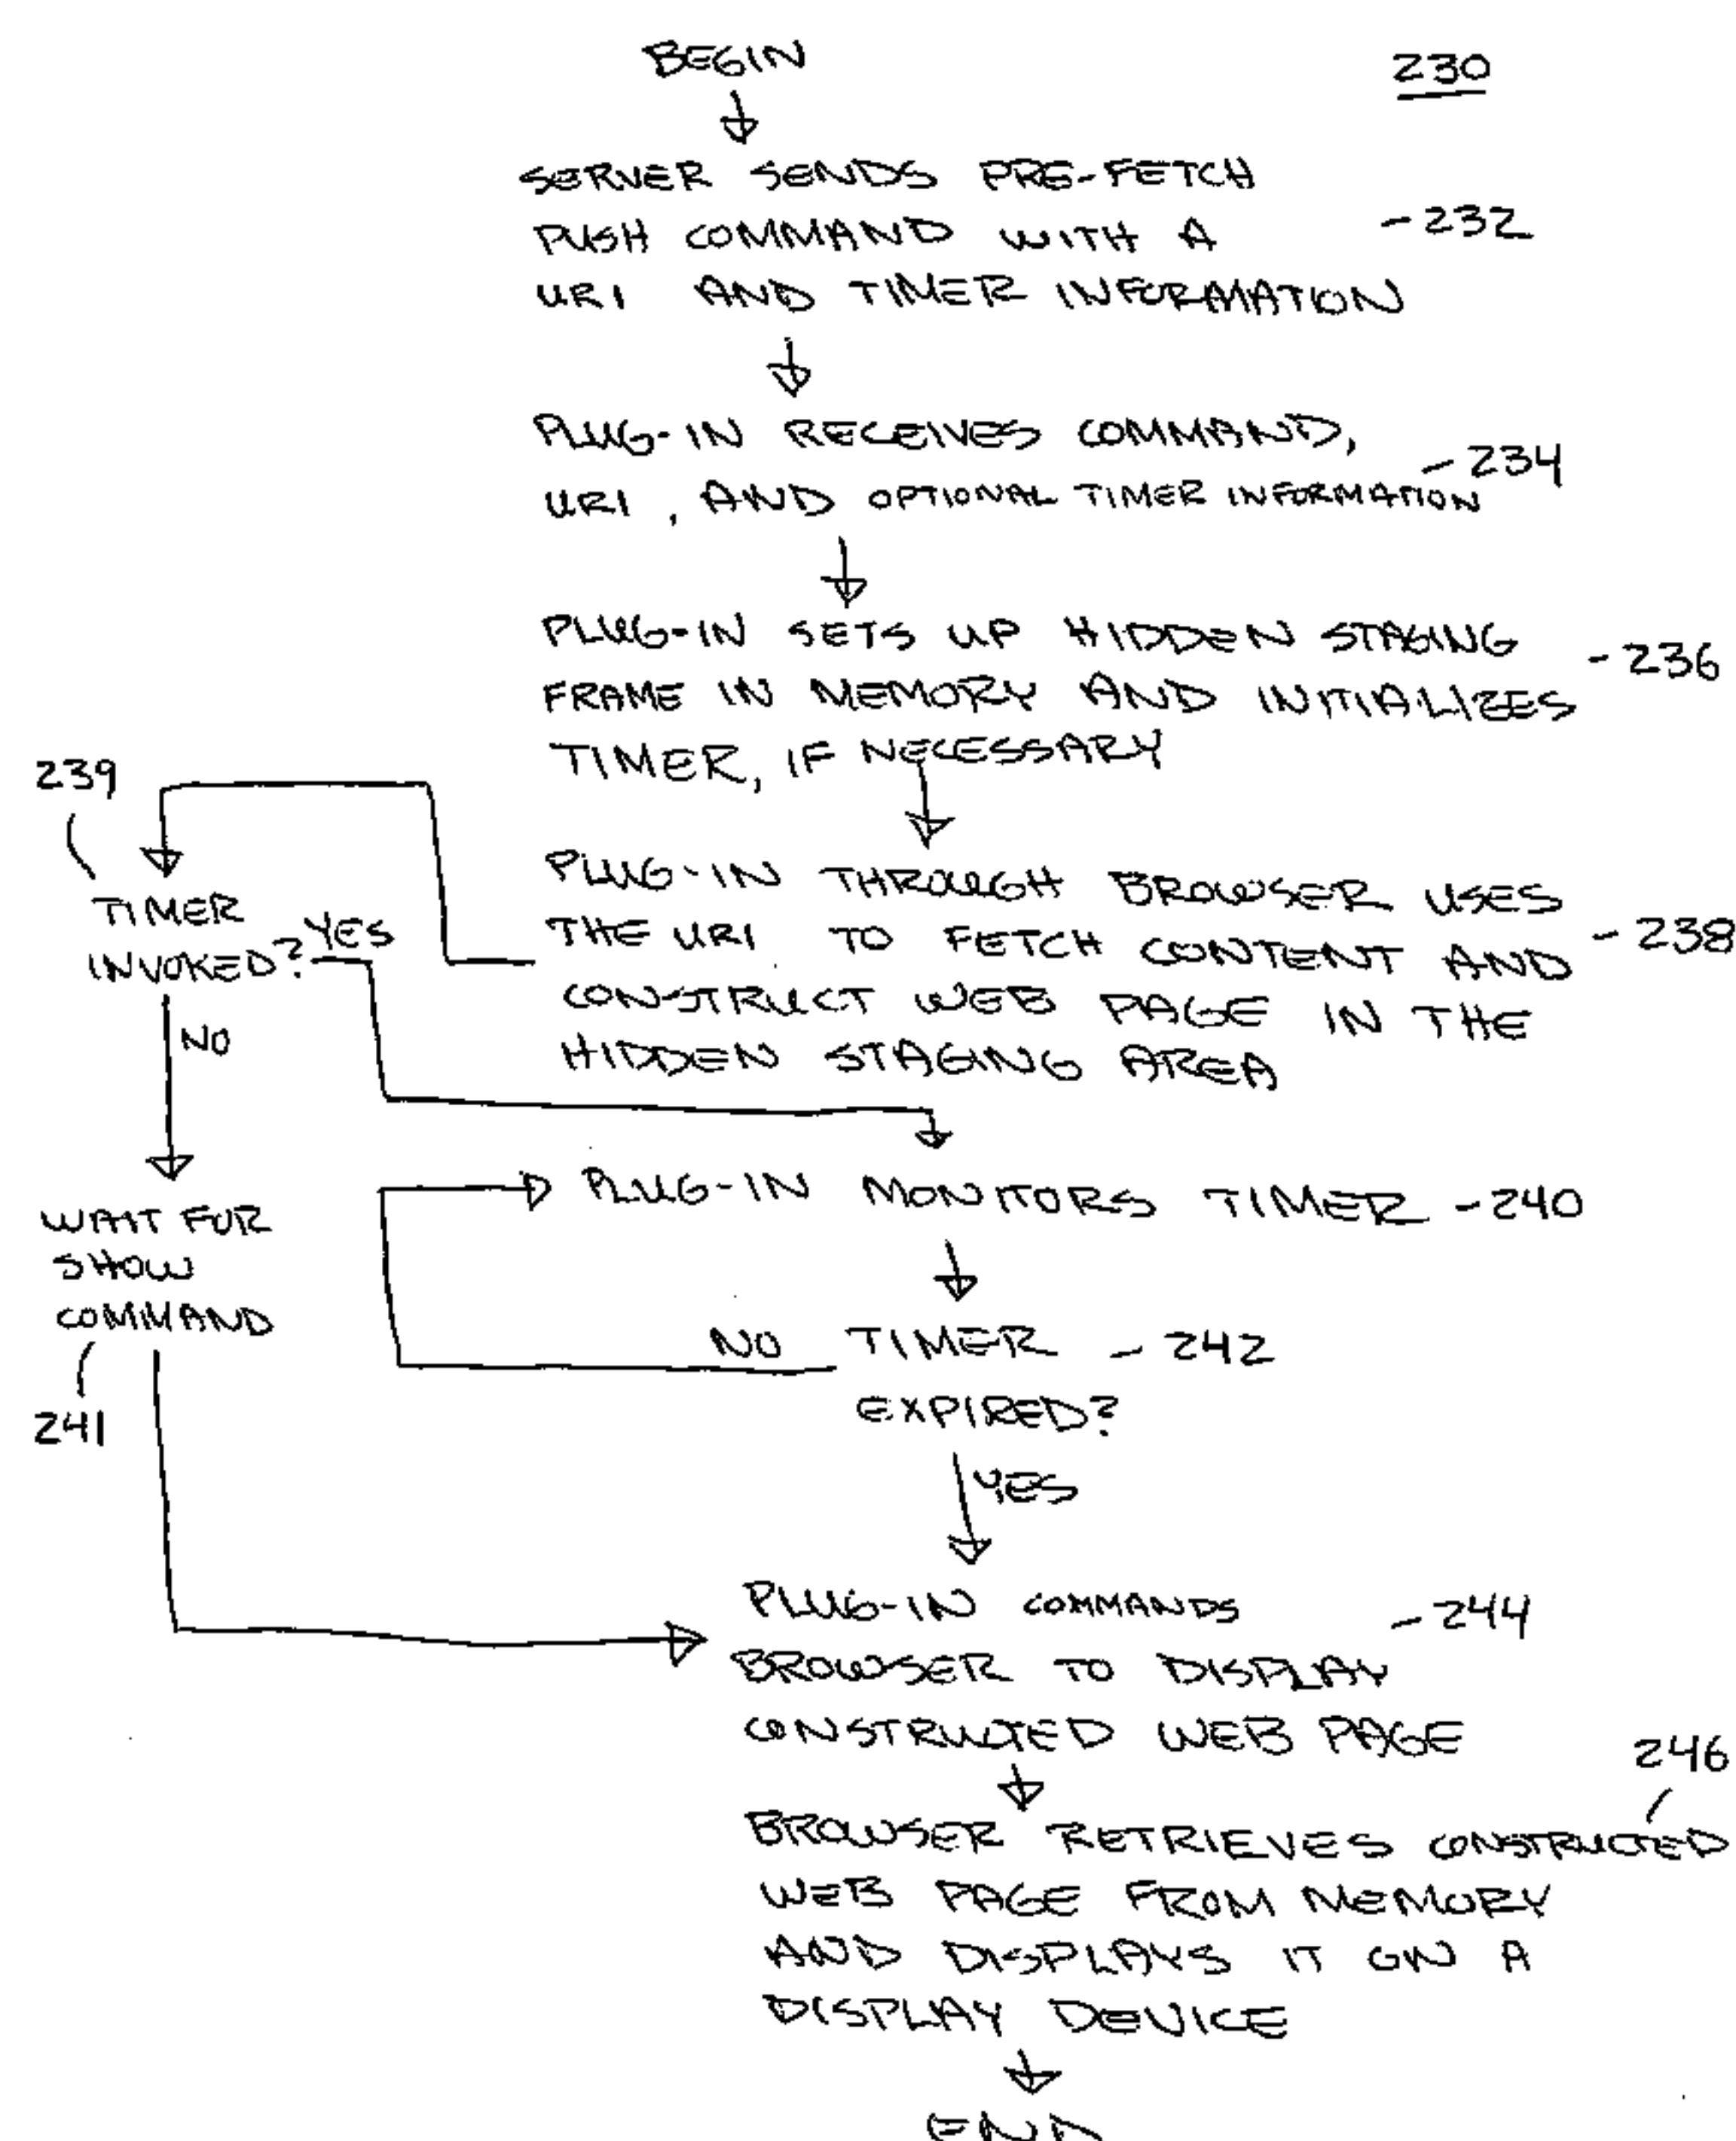 BEGIN
230
SERVER SENDS PRE-FETCH
PUSH COMMAND WITH A
-232
URI AND TIMER INFORMATION
PLUG-IN RECEIVES COMMAND,
-234
URI, AND OPTIONAL TIMER INFORMATION
PLUG-IN SETS UP HIDDEN STAGING
-236
FRAME IN MEMORY AND INITIALIZES
TIMER, IF NECESSARY
239
TIMER
INVOKED?
YES
NO
PLUG-IN THROUGH BROWSER USES
THE URI TO FETCH CONTENT AND
-238
CONSTRUCT WEB PAGE IN THE
HIDDEN STAGING AREA
WAIT FOR
SHOW
COMMAND
241
PLUG-IN MONITORS TIMER -240
NO
TIMER - 242
EXPIRED?
YES
PLUG-IN COMMANDS
-244
BROWSER TO DISPLAY
CONSTRUCTED WEB PAGE
246
BROWSER RETRIEVES CONSTRUCTED
WEB PAGE FROM MEMORY
AND DISPLAYS IT ON A
DISPLAY DEVICE
END